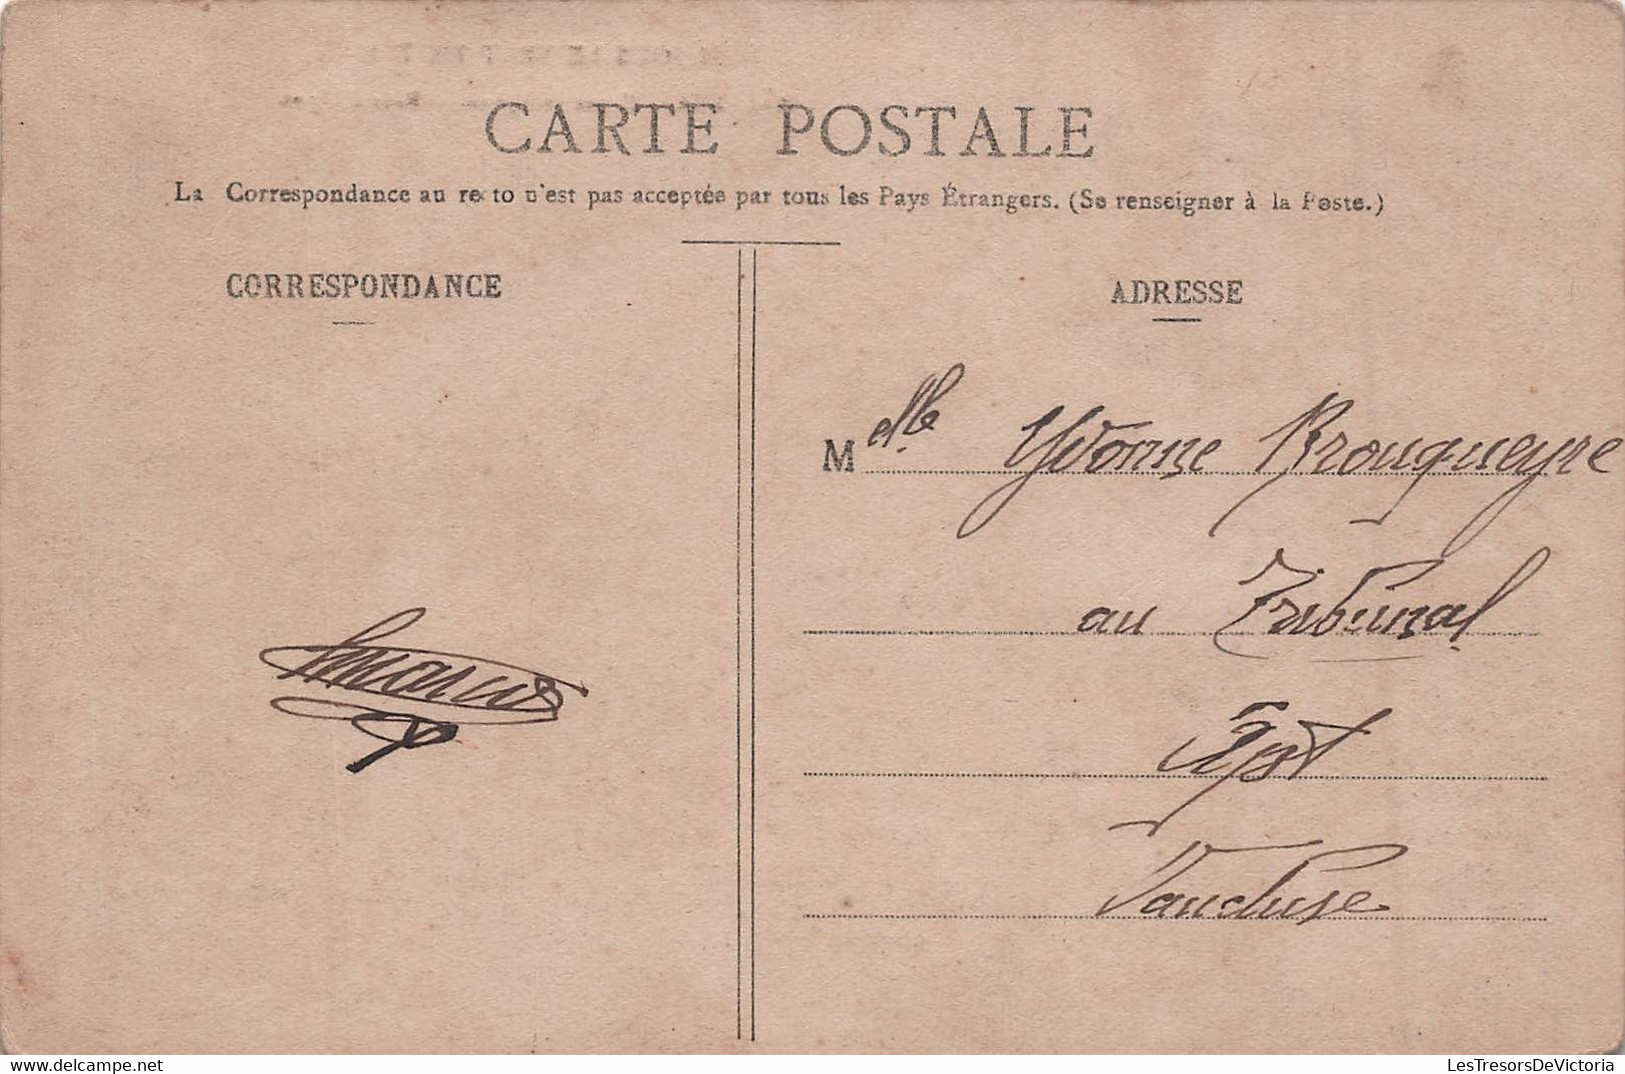 CARTE POSTALE
La Correspondance au recto n'est pas acceptée par tous les Pays Étrangers. (Se renseigner à la Poste.)
CORRESPONDANCE
ADRESSE
Melle Yvonne Brouqueyre
au Tribunal
Apt
Vaucluse
https://www.delcampe.net
LesTresorsDeVictoria